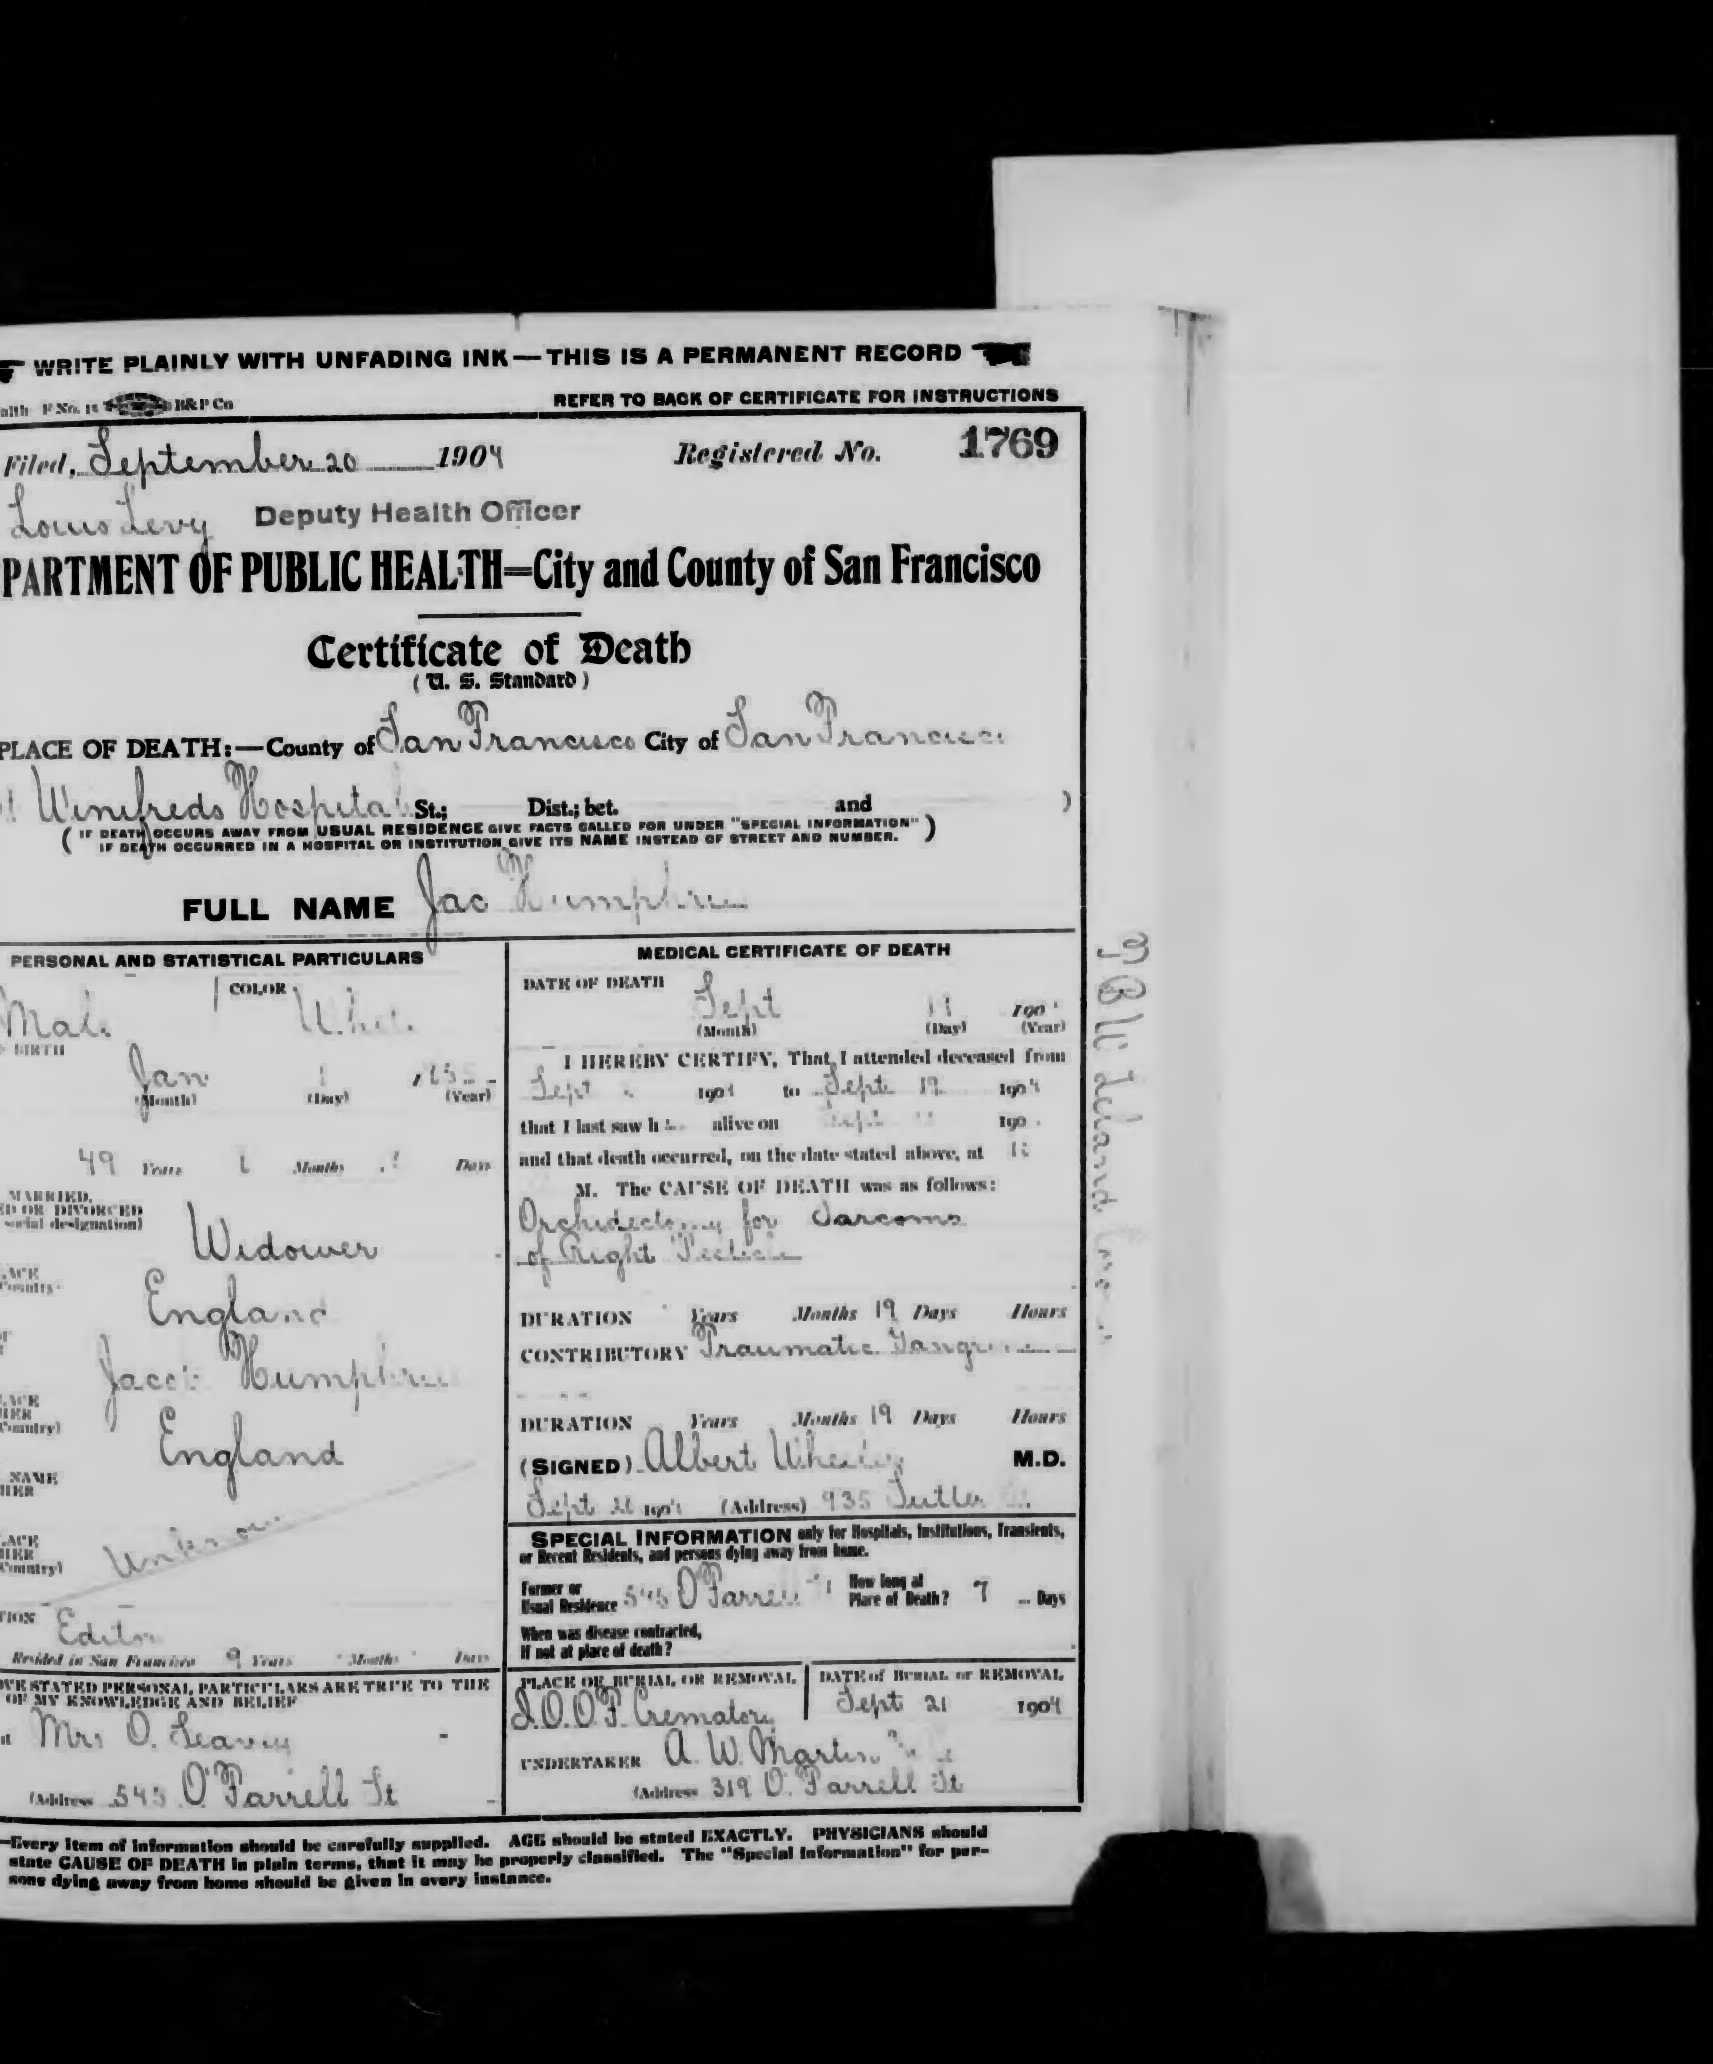 WRITE PLAINLY WITH UNFADING INK — THIS IS A PERMANENT RECORD
alth F No. R&P Co REFER TO BACK OF CERTIFICATE FOR INSTRUCTIONS
Filed, September 20 1904 Registered No. 1769
Louis Levy Deputy Health Officer
PARTMENT OF PUBLIC HEALTH=City and County of San Francisco
Certificate of Death
(U. S. Standard)
PLACE OF DEATH:—County of San Francisco City of San Francisco
Winifreds Hospital St.; Dist.; bet. and )
( IF DEATH OCCURS AWAY FROM USUAL RESIDENCE GIVE FACTS CALLED FOR UNDER "SPECIAL INFORMATION" )
IF DEATH OCCURRED IN A HOSPITAL OR INSTITUTION GIVE ITS NAME INSTEAD OF STREET AND NUMBER.
FULL NAME Jac Humphrie
PERSONAL AND STATISTICAL PARTICULARS
Male COLOR White
BIRTH
Jan 1
(Month) (Day) (Year)
49 Years Months Days
MARRIED,
ED OR DIVORCED
social designation)
Widower
LACE
Country
England
Jacob Humphrie
LACE
HER
Country)
England
NAME
HER
LACE
HER
Country)
Unknown
TION
Editor
Resided in San Francisco 9 Years Months Days
OVE STATED PERSONAL PARTICULARS ARE TRUE TO THE
OF MY KNOWLEDGE AND BELIEF
Mrs O. Leavey
(Address 545 O'Farrell St
MEDICAL CERTIFICATE OF DEATH
DATE OF DEATH
Sept 190
(Month) (Day) (Year)
I HEREBY CERTIFY, That I attended deceased from
Sept 1904 to Sept 19 1904
that I last saw h alive on Sept 190
and that death occurred, on the date stated above, at
M. The CAUSE OF DEATH was as follows:
Orchidectomy for Sarcoma
of Right Testicle
DURATION Years Months 19 Days Hours
CONTRIBUTORY Traumatic Gangrene
DURATION Years Months 19 Days Hours
(SIGNED) Albert Wheeler M.D.
Sept 20 1904 (Address) 935 Sutter St.
SPECIAL INFORMATION only for Hospitals, Institutions, Transients,
or Recent Residents, and persons dying away from home.
Former or
Usual Residence 545 O'Farrell St
How long at
Place of Death? 7 Days
When was disease contracted,
If not at place of death?
PLACE OF BURIAL OR REMOVAL
I.O.O.F. Crematory
DATE of BURIAL or REMOVAL
Sept 21 1904
UNDERTAKER A. W. Martin
(Address 319 O'Farrell St
—Every item of information should be carefully supplied. AGE should be stated EXACTLY. PHYSICIANS should
state CAUSE OF DEATH in plain terms, that it may be properly classified. The "Special Information" for per-
sons dying away from home should be given in every instance.
Leland